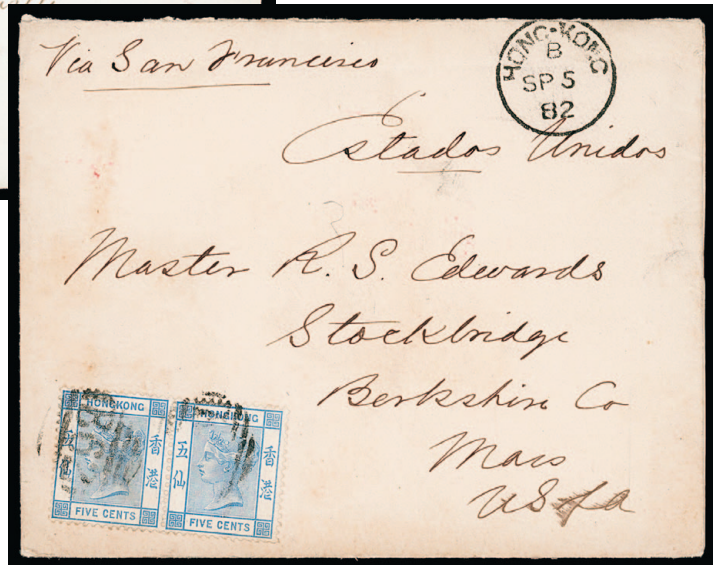 Via San Francisco
HONG-KONG
B
SP 5
82
Estados Unidos
Master R. S. Edwards
Stockbridge
Berkshire Co
Mass
USA
HONGKONG
五仙
香港
FIVE CENTS
HONGKONG
五仙
香港
FIVE CENTS